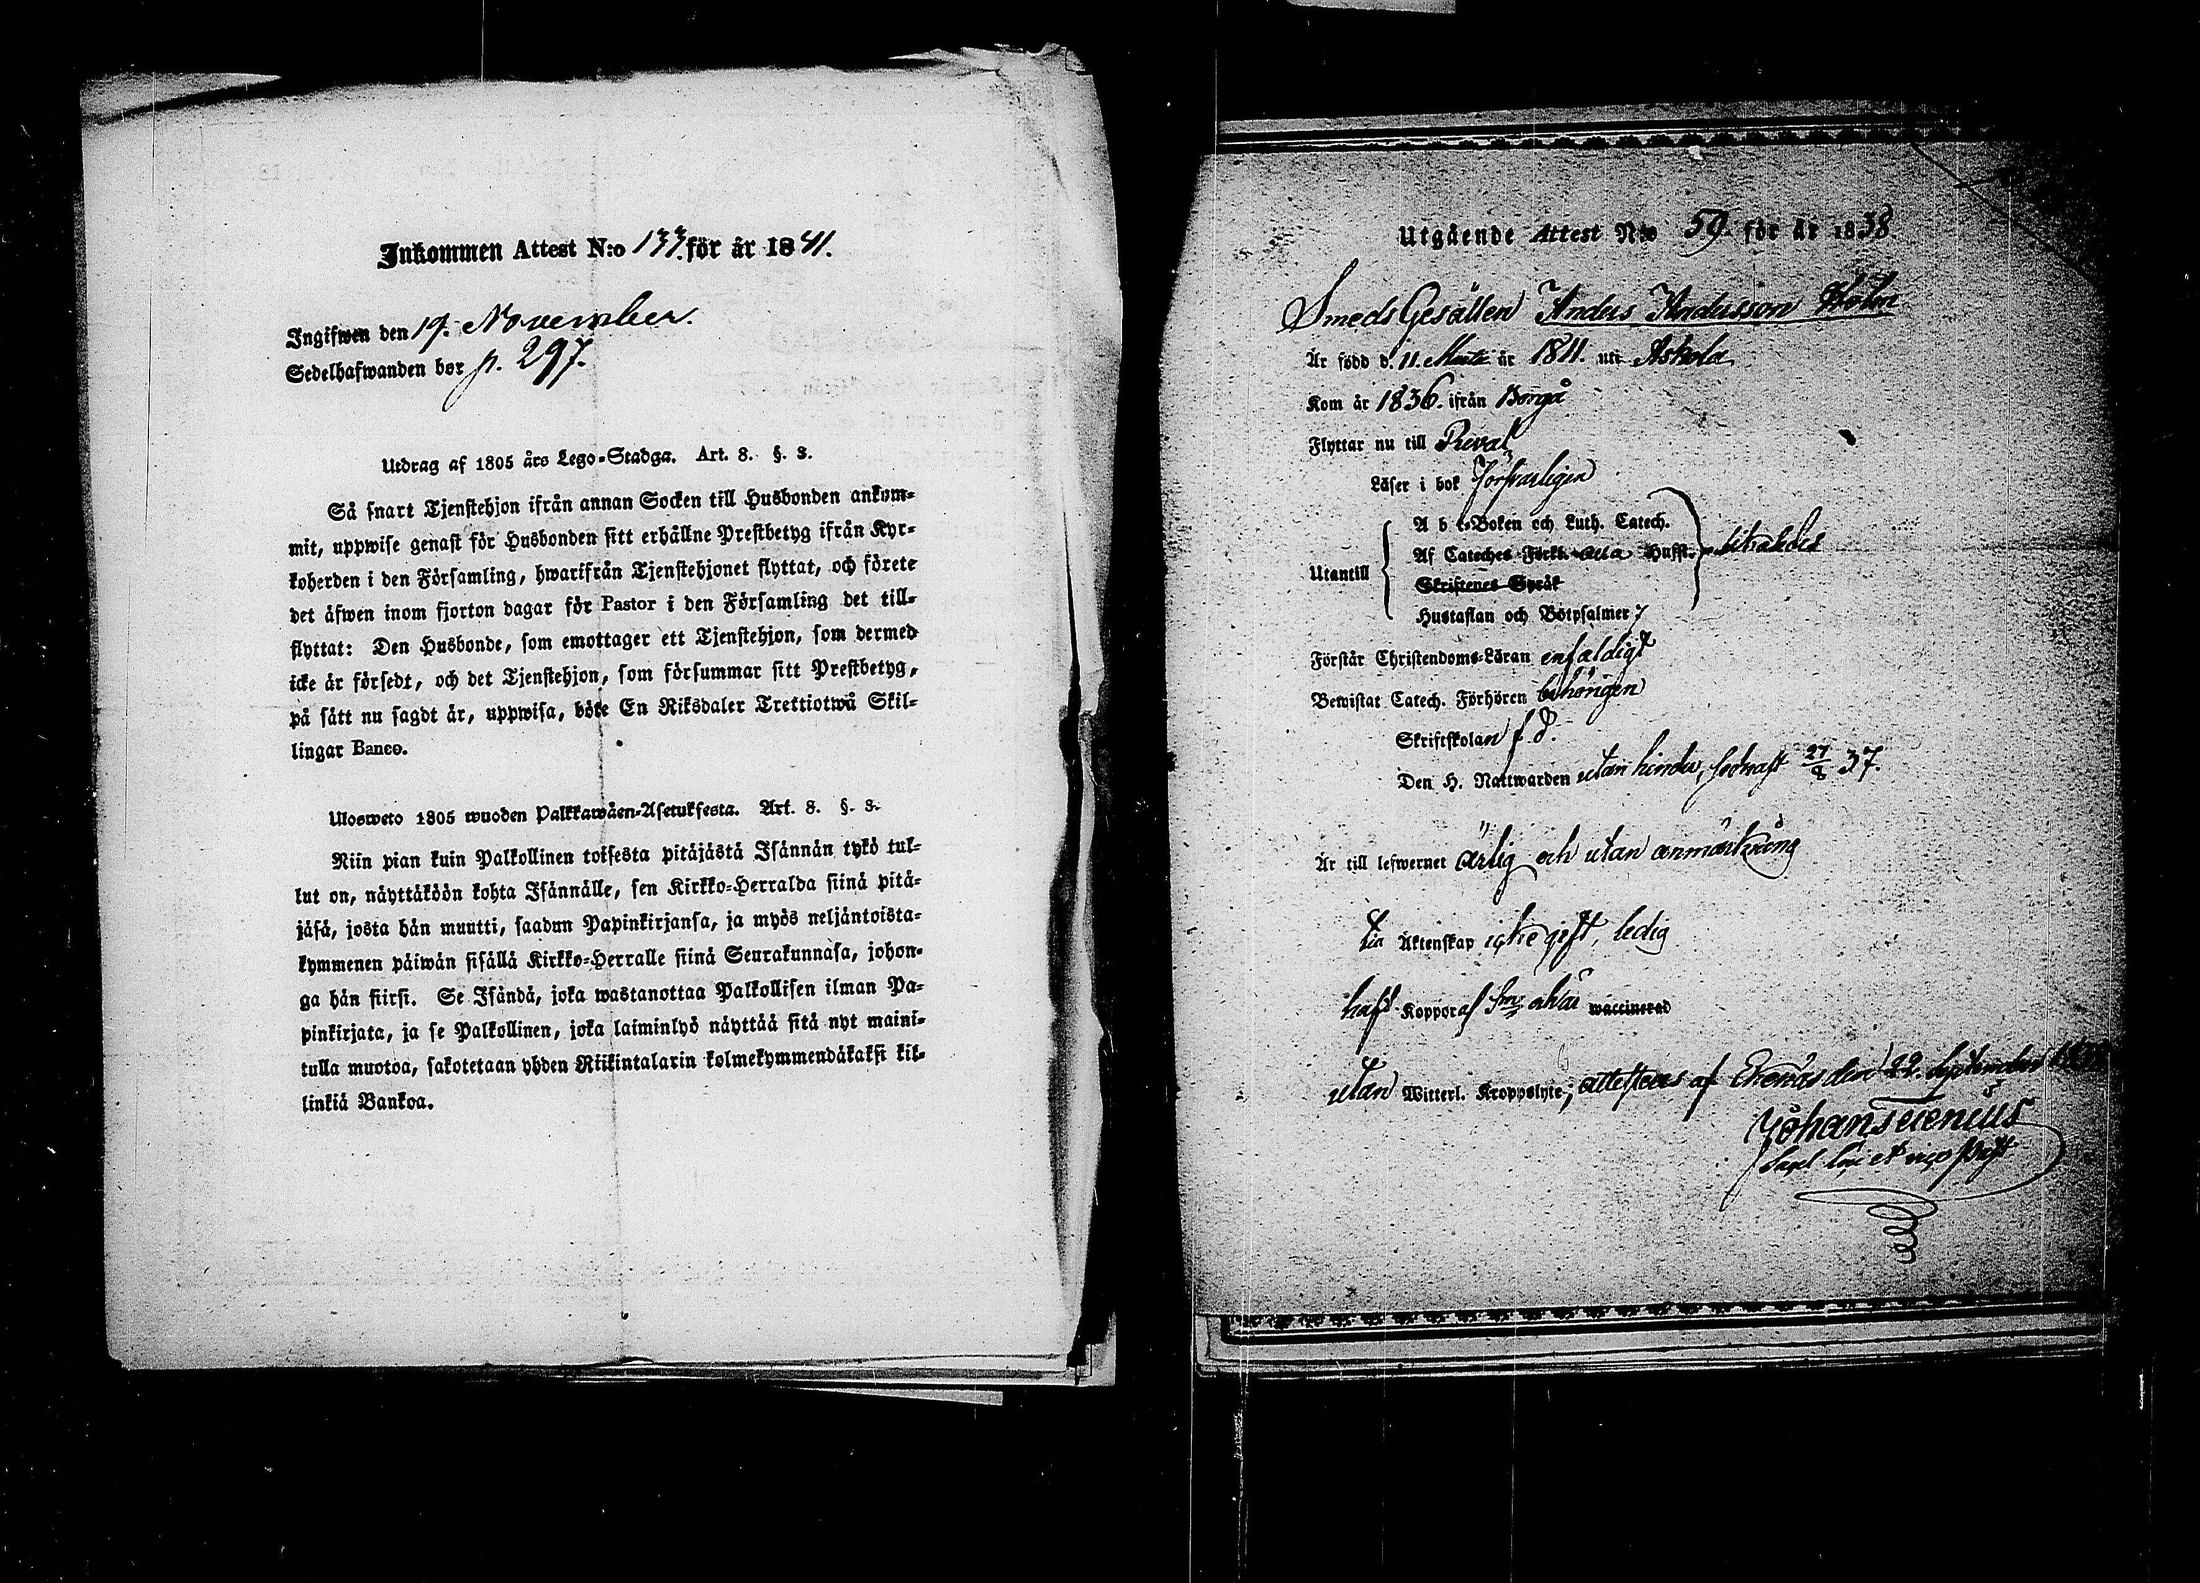 Inkommen Attest N:o 133. för år 1841.
Ingifwen den 19. November.
Sedelhafwanden bor p. 297.
Utdrag af 1805 års Lego-Stadga. Art. 8. §. 3.
Så snart Tjenstehjon ifrån annan Socken till Husbonden ankom-
mit, uppwise genast för Husbonden sitt erhållne Prestbetyg ifrån Kyr-
koherden i den Församling, hwarifrån Tjenstehjonet flyttat, och förete
det äfwen inom fjorton dagar för Pastor i den Församling det till-
flyttat: Den Husbonde, som emottager ett Tjenstehjon, som dermed
icke är försedt, och det Tjenstehjon, som försummar sitt Prestbetyg,
på sätt nu sagdt är, uppwisa, böte En Riksdaler Trettiotwå Skil-
lingar Banco.
Ulosweto 1805 wuoden Palkkawäen-Asetuksesta. Art. 8. §. 3.
Niin pian kuin Palkollinen toisesta pitäjästä Isännän tykö tul-
lut on, näyttäköön kohta Isännälle, sen Kirkko-Herralda siinä pitä-
jäsä, josta hän muutti, saadun Papinkirjansa, ja myös neljäntoista-
kymmenen päiwän sisällä Kirkko-Herralle siinä Seurakunnasa, johon-
ga hän siirsi. Se Isändä, joka wastanottaa Palkollisen ilman Pa-
pinkirjata, ja se Palkollinen, joka laiminlyö näyttää sitä nyt maini-
tulla muotoa, sakotetaan yhden Riikintalarin kolmekymmendäkaksi kil-
linkiä Bankoa.
Utgående Attest N:o 59. för år 1838
Smeds Gesällen Anders Andersson Holm
Är född d. 11. Martii år 1811. uti Askola
Kom år 1836. ifrån Borgå
Flyttar nu till Reval
Läser i bok försvarligen
A b c-Boken och Luth. Catech.
Af Cateches Förkl. Hufst.
Utantill
Skriftenes Språk
Hustaflan och Botpsalmer
Förstår Christendoms-Läran enfaldigt
Bewistat Catech. Förhören behörigen
Skriftskolan f. d.
Den H. Nattwarden utan hinder, sednast 27/8 37.
Är till lefwernet ärlig och utan anmärkning
till Äktenskap icke gift, ledig
haft Koppor waccinerad
utan Witterl. Kroppslyte; attesteras af Ekenäs den 22. September
Johan